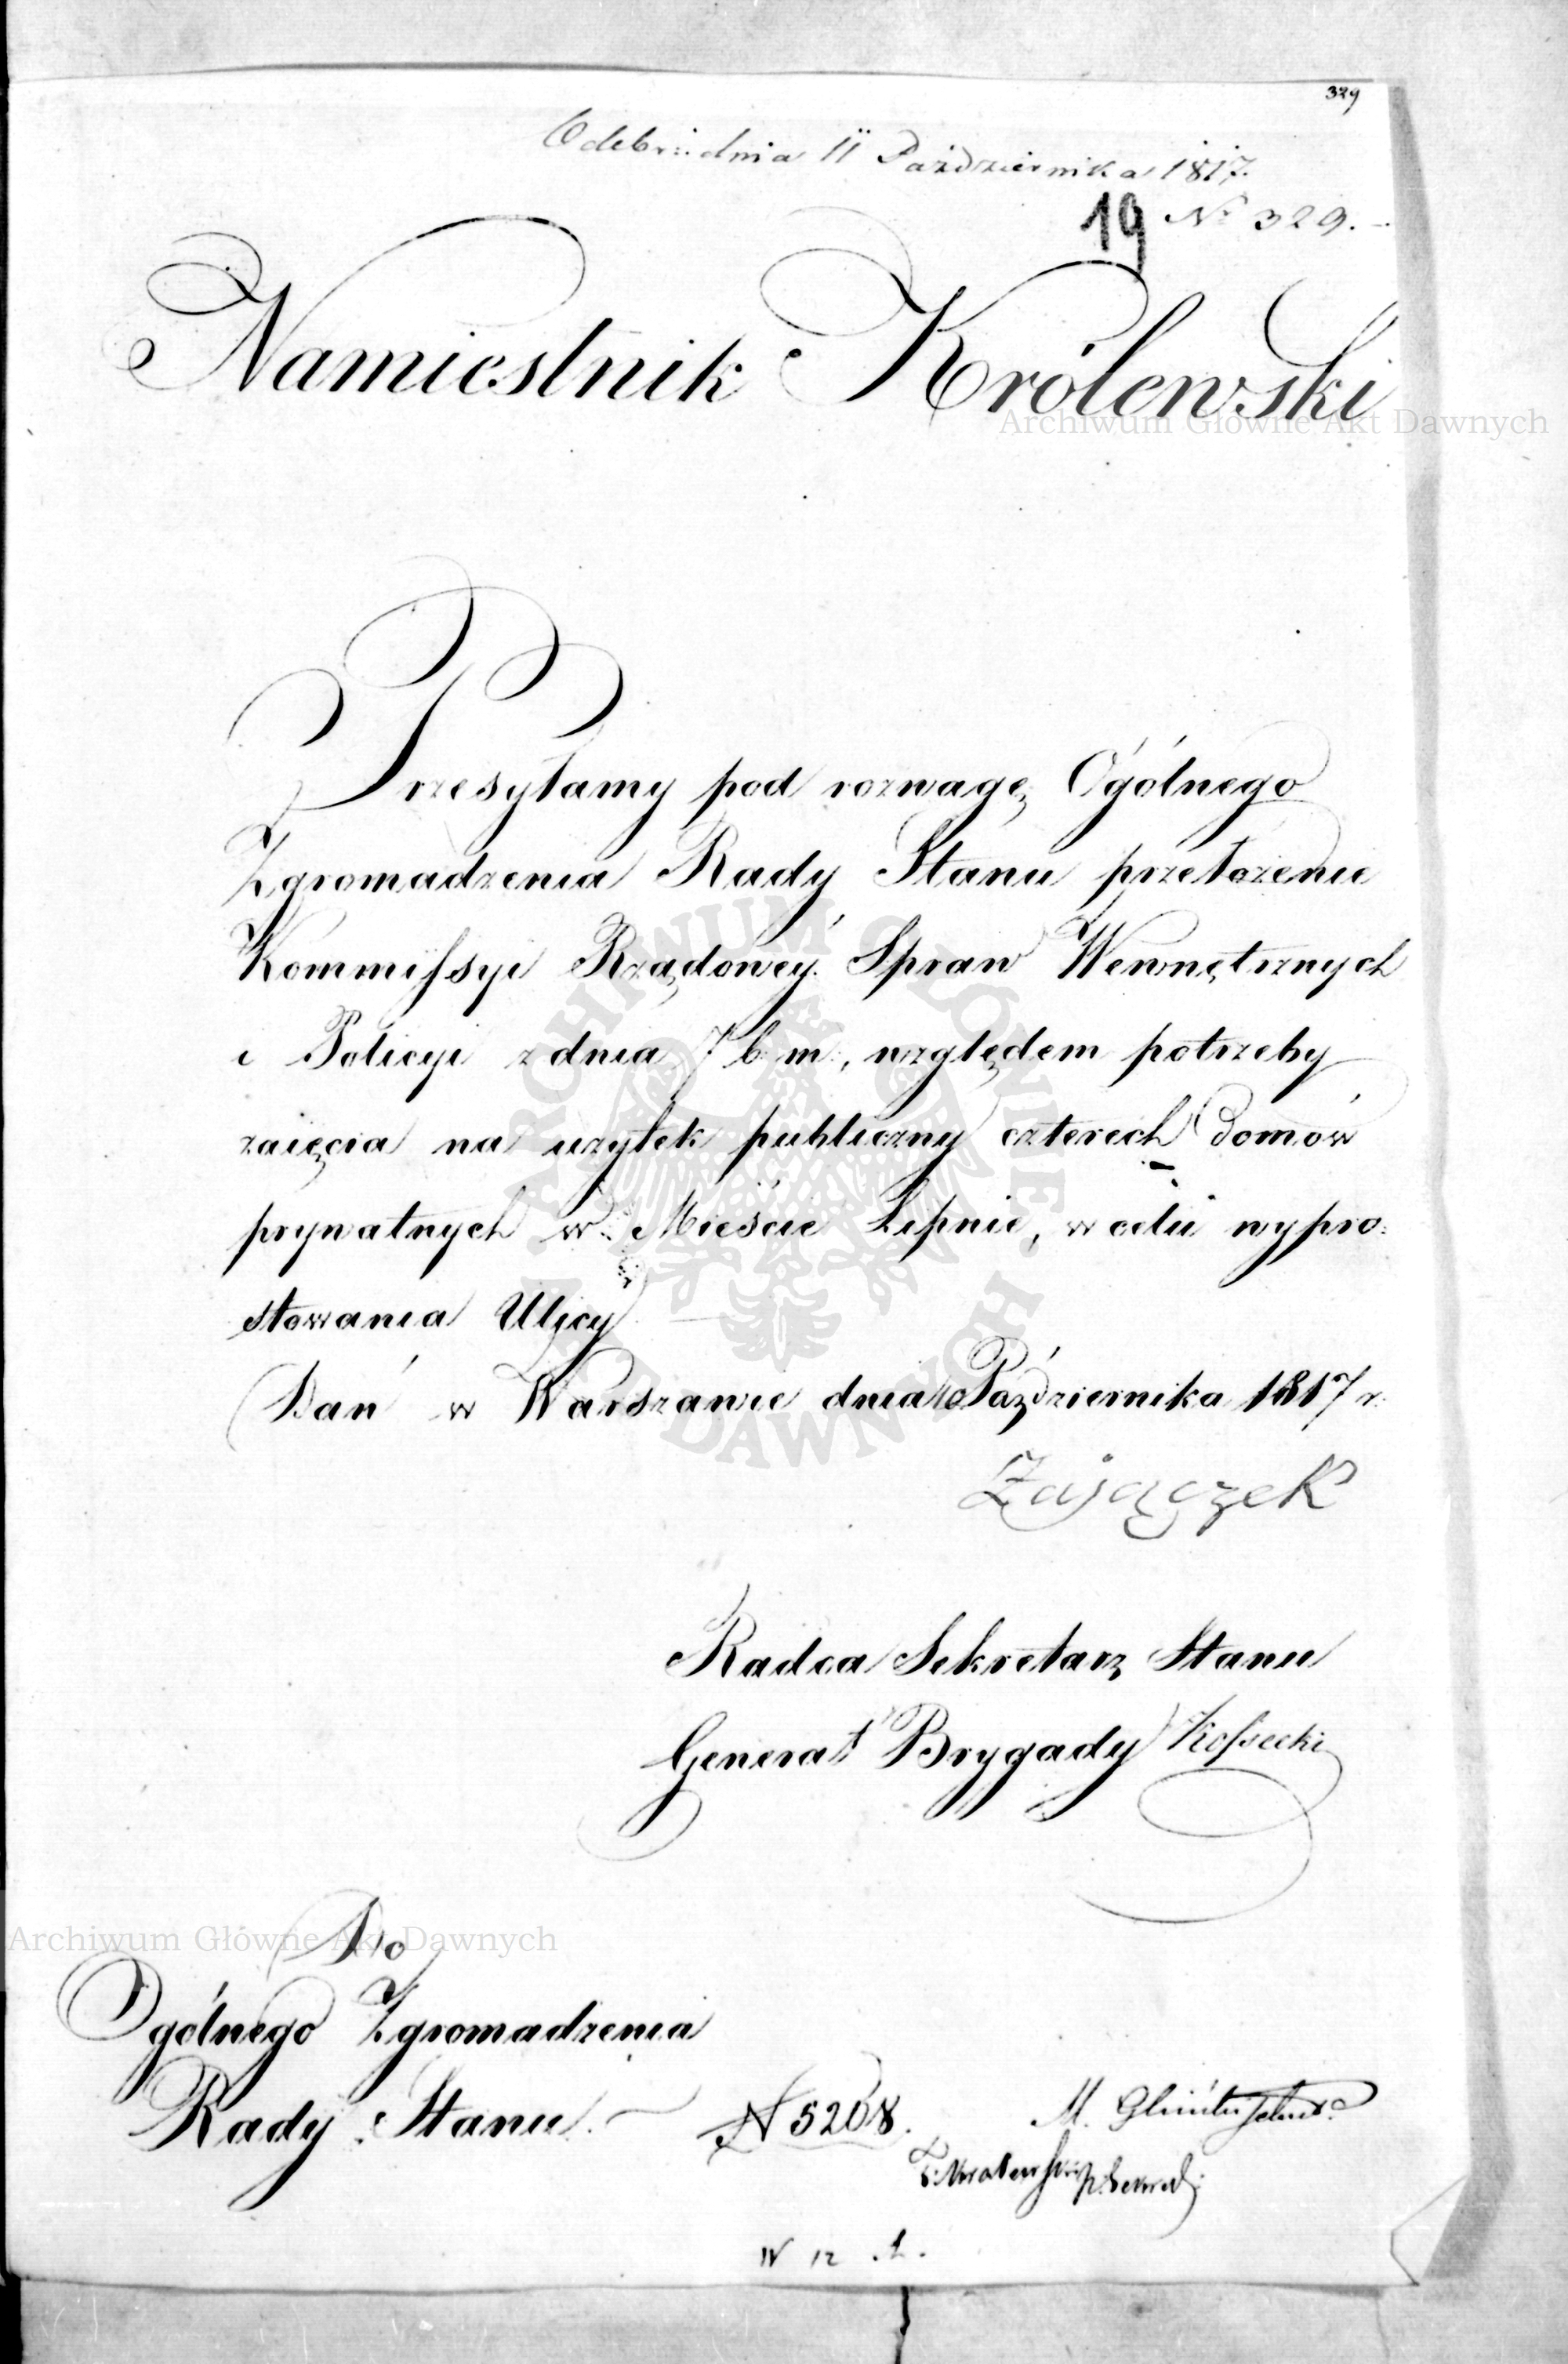 329
Odebr: dnia 11 Października 1817.
19 Nº 329.
Namiestnik Królewski
Archiwum Główne Akt Dawnych
Przesyłamy pod rozwagę Ogólnego
Zgromadzenia Rady Stanu przełożenie
Kommissyi Rządowey Spraw Wewnętrznych
i Policyi z dnia 7 b. m., względem potrzeby
zaięcia na użytek publiczny czterech domów
prywatnych w Mieście Lipnie, w celu wypro:
stowania Ulicy
Dan w Warszawie dnia 10 Października 1817 r.
Zajączek
Radca Sekretarz Stanu
Generał Brygady Kossecki
Archiwum Główne Akt Dawnych
Do
Ogólnego Zgromadzenia
Rady Stanu.
N 5208.
M.
W 12 .
ARCHIWUM GŁÓWNE AKT DAWNYCH